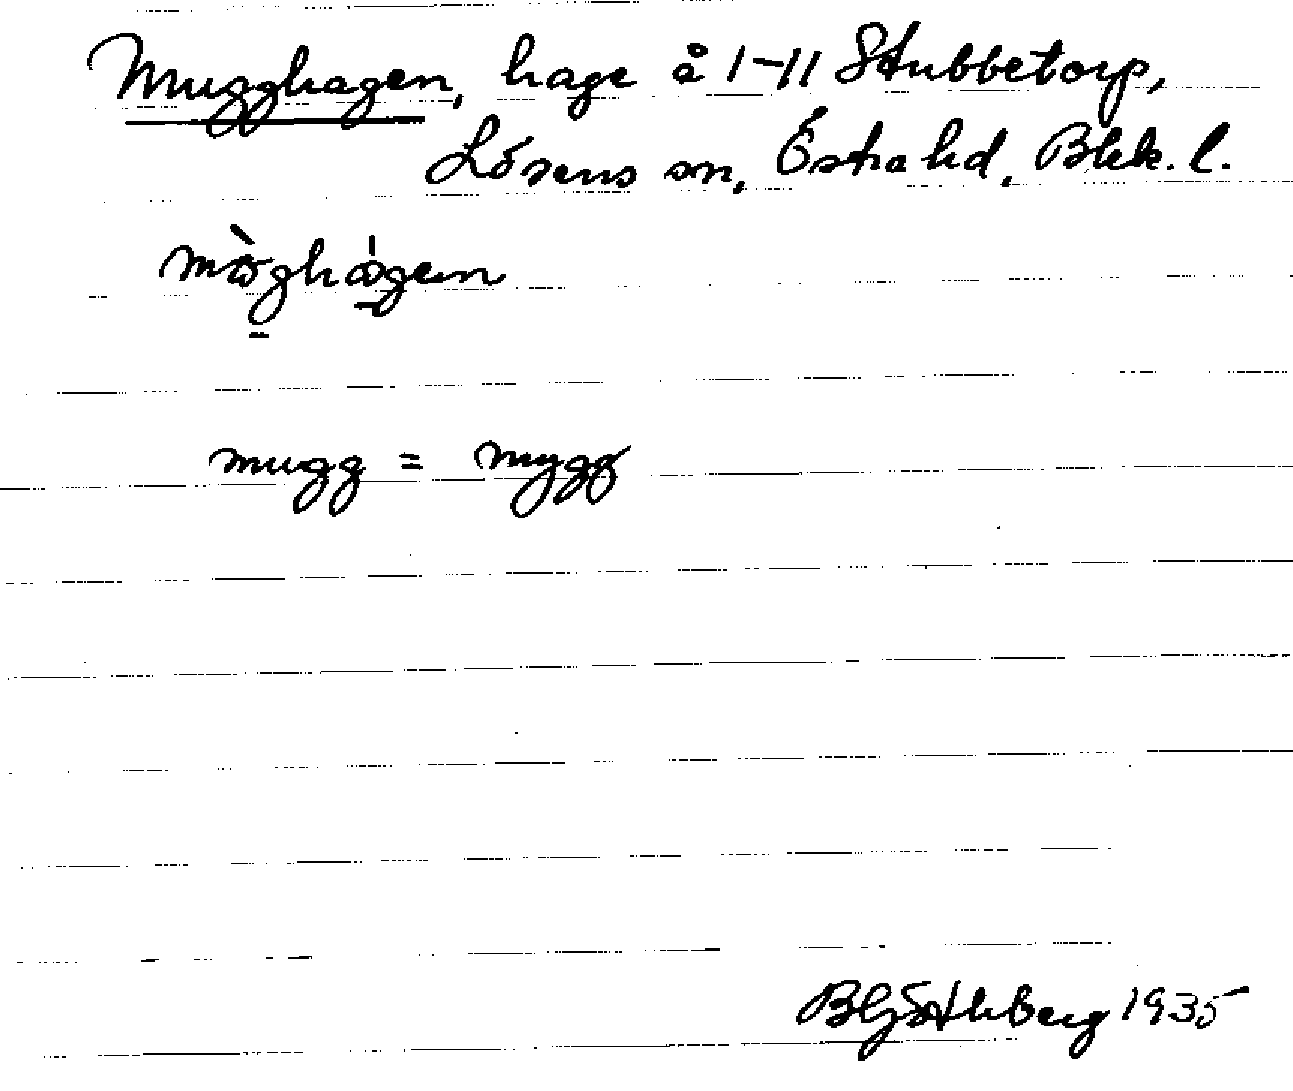 Mugghagen, hage å 1-11 Stubbetorp,
Lösens sn, Östra hd, Blek. l.
mugg = mygg
1935